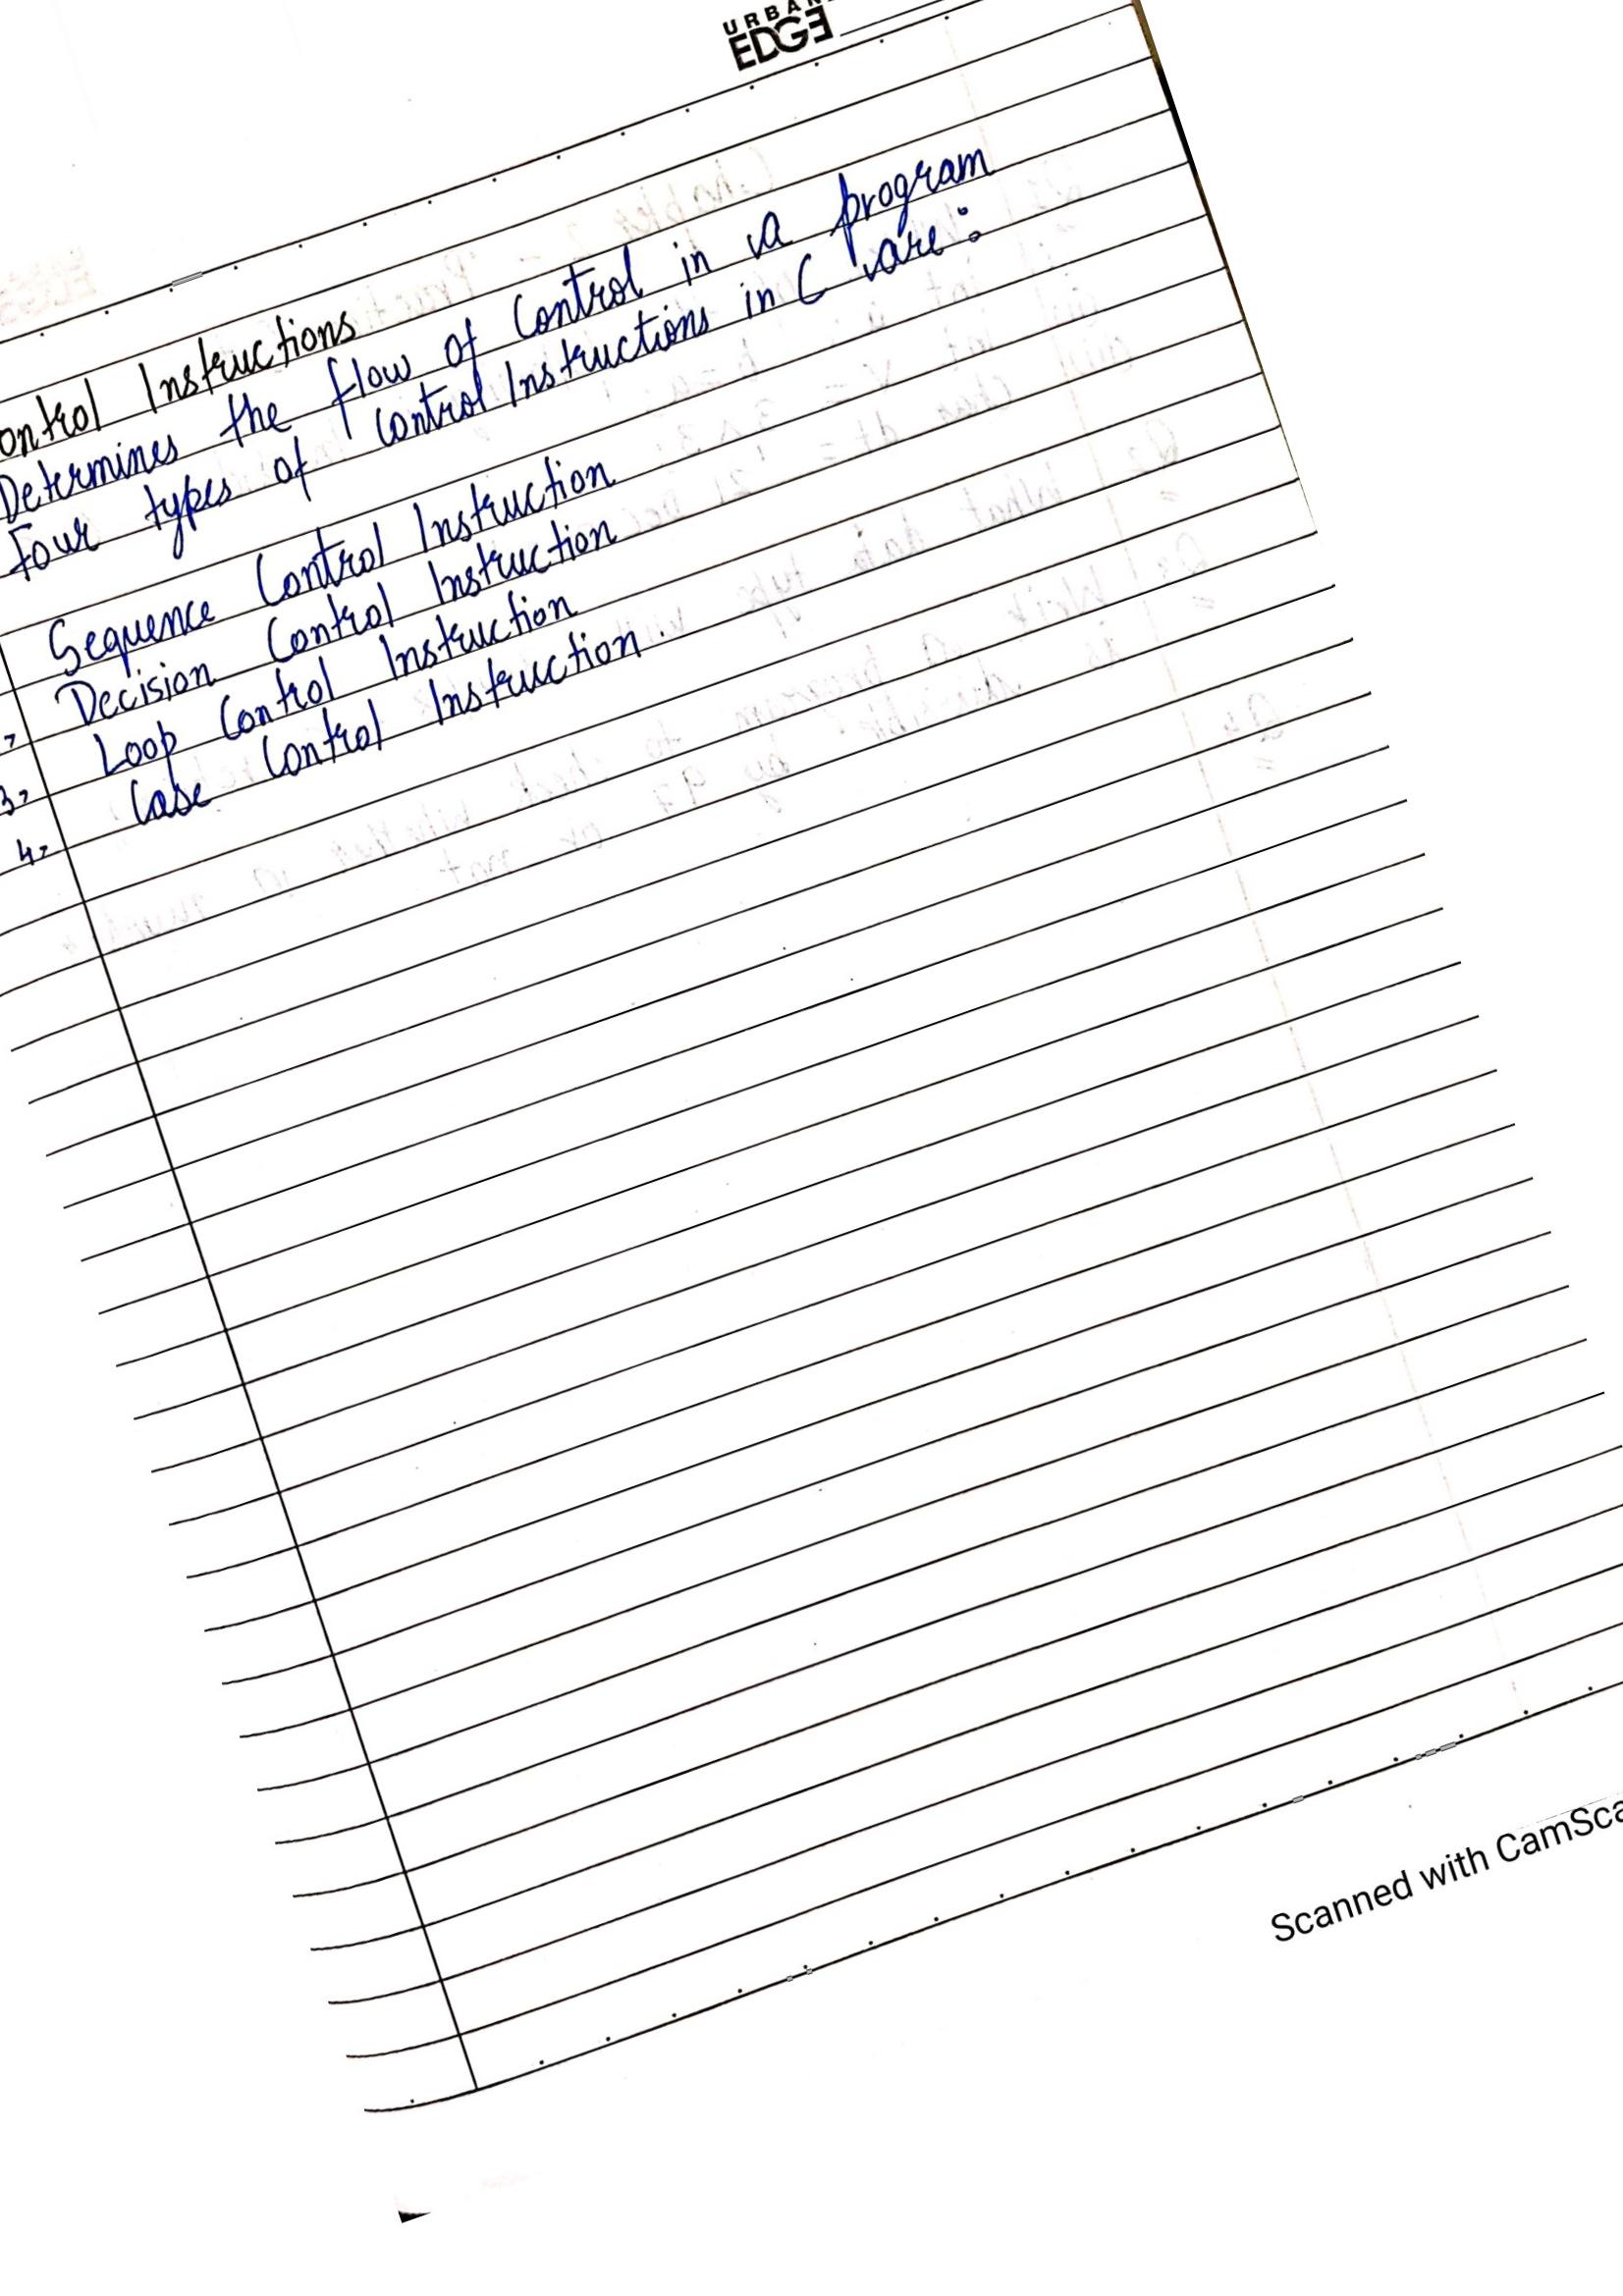 URBAN
EDGE
ontrol Instructions
Determines the flow of Control in a program
Four types of Control Instructions in C are:
Sequence Control Instruction
Decision Control Instruction
3. Loop Control Instruction
4. Case Control Instruction.
Scanned with CamSca